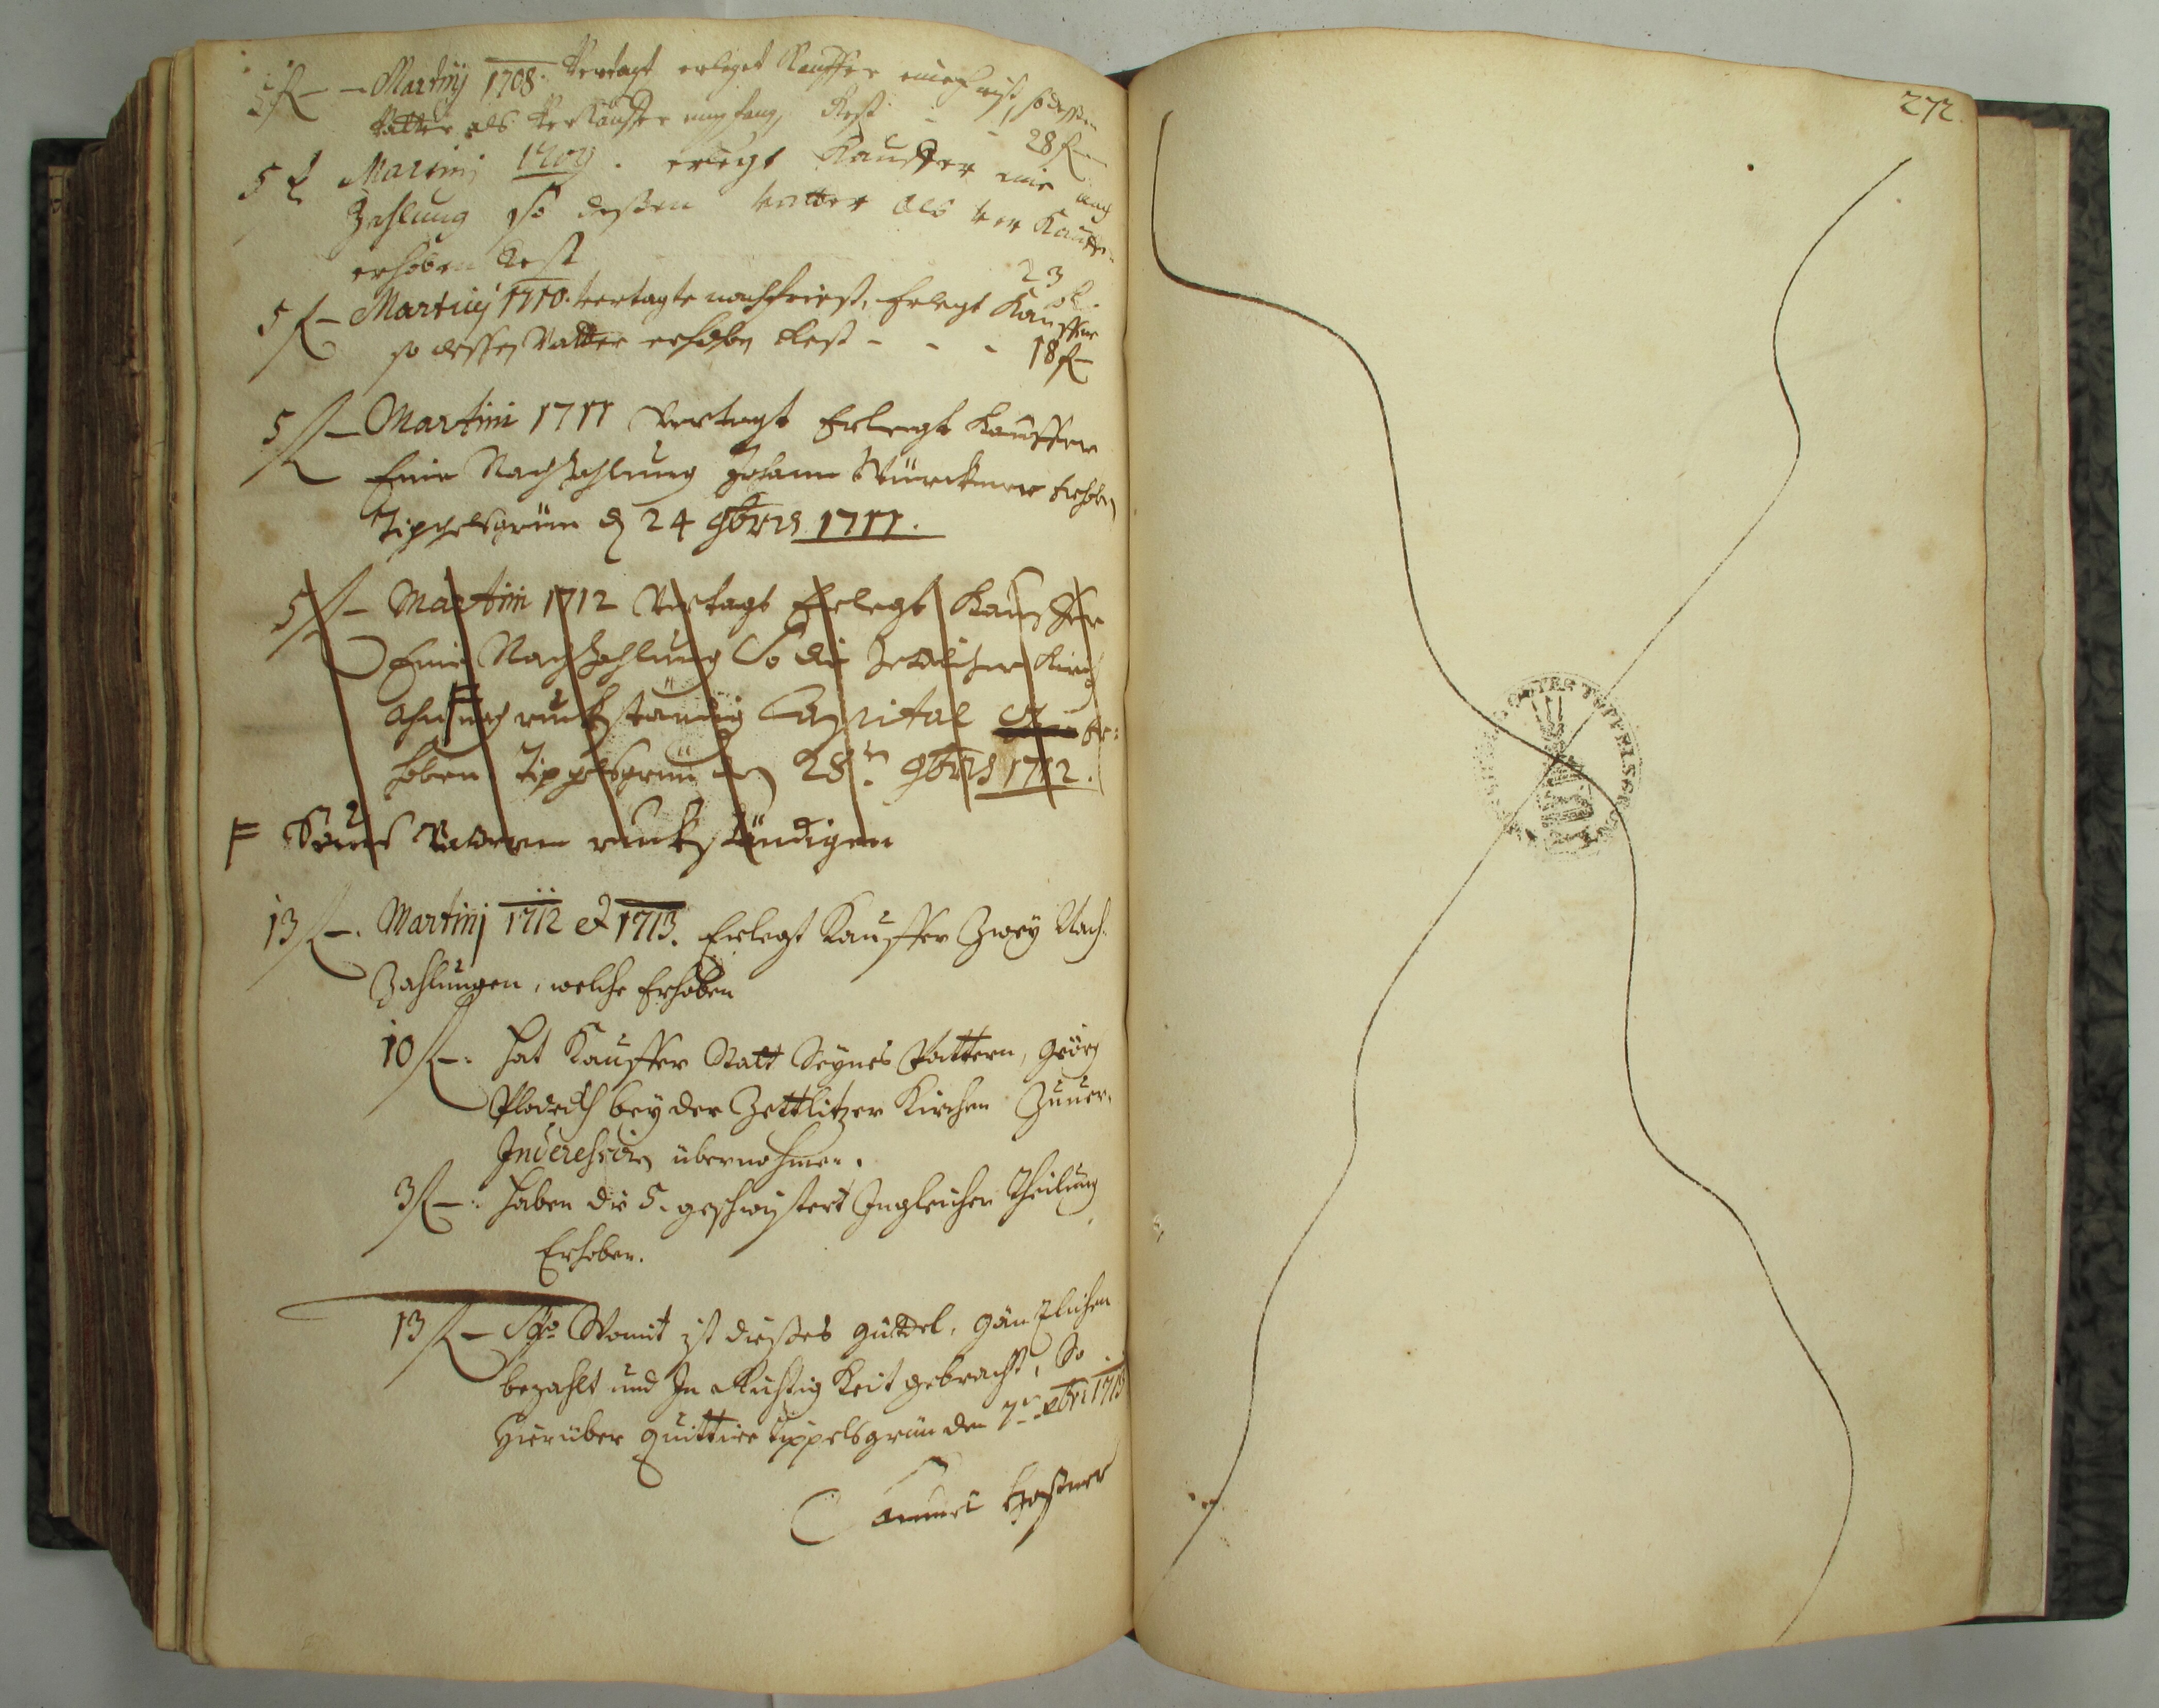 5 f — Martinj 1708. Vertagt erleget Kauffer eine frist, so dessen
Vatter als Verkauffer empfang, Rest - - 28 f —
5 f Martinj 1709. erlegt Kauffer eine nach
Zahlung so deßen Vatter als Ver Kauffer
erhoben Rest 23 f.
5 f — Martinj 1710. vertagte nachfrist, Erlegt Kauffer
so dessen Vatter erhoben Rest - - - 18 f —
5 f — Martini 1711 Vertagt Erlegt Kauffer
Eine Nachzahlung Johann erhoben
Tippelsgrün d 24 9bris 1711.
5 f — Martini 1712 Vertagt Erlegt Kauffer
Eine Nachzahlung So die Kirch
ruckständig Capital er:
hoben Tippelsgrün den 28tn 9bris 1712.
F ruckständigen
13 f —. Martinj 1712 et 1713. Erlegt Kauffer Zwey Nach:
Zahlungen, welche Erhoben
10 f —: hat Kauffer Statt Seynes Vattern, Georg
bey der Zettlitzer Kirchen Zuuer-
Interessiren übernohmen.
3 f —: haben die 5. geschwistert Ingleicher Theilung
Erhoben.
13 f — Womit ist dießes güttel, gäntzlichen
bezahlt und In Richtig Keit gebracht, So
Hierüber quittire Tippelsgrün den 7ten 1713
272.